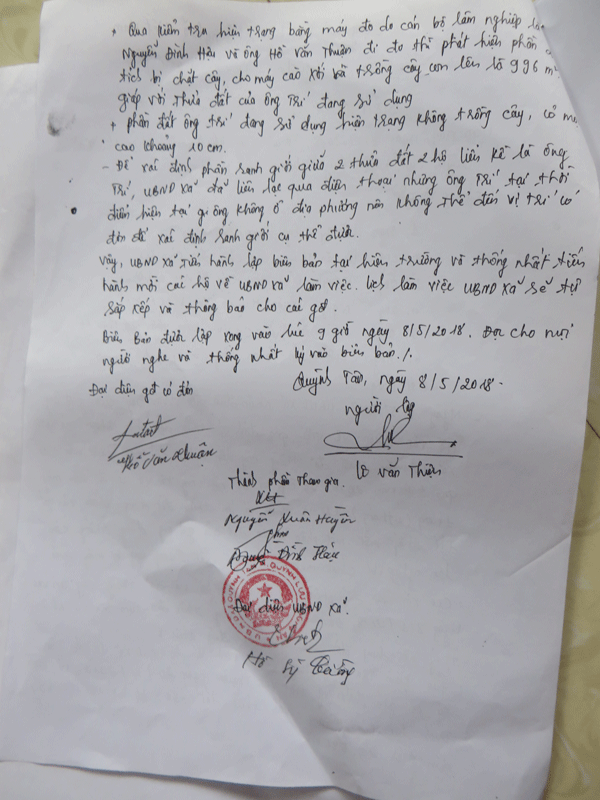 + Qua kiểm tra hiện trạng bằng máy đo do cán bộ lâm nghiệp là
Nguyễn Đình Hậu và ông Hồ Văn Thuận đi đo thì phát hiện phần
tích bị chặt cây, cho máy cào xới và trồng cây con lên là 996 m
giáp với thửa đất của ông Trí đang sử dụng
+ phần đất ông trí đang sử dụng hiện trạng không trồng cây, cỏ mọ
cao khoảng 10 cm.
- Để xác định phần ranh giới giữa 2 thửa đất 2 hộ liền kề là ông
Trí, UBND xã đã liên lạc qua điện thoại nhưng ông Trí tại thời
điểm hiện tại ông không ở địa phương nên không thể đến vị trí có
đơn để xác định ranh giới cụ thể được.
Vậy, UBND xã tiến hành lập biên bản tại hiện trường và thống nhất tiến
hành mời các hộ về UBND xã làm việc. Lịch làm việc UBND xã sẽ tự
sắp xếp và thông báo cho các hộ.
Biên bản được lập xong vào lúc 9 giờ ngày 8/5/2018. Đọc cho mọi
người nghe và thống nhất ký vào biên bản./.
Quỳnh Tân, ngày 8/5/2018.
Đại diện gđ có đơn
người lập
Hồ Văn Thuận
Lê Văn Thiện
Thành phần tham gia.
Nguyễn Xuân Huyền
Nguyễn Đình Hậu
Đại diện UBND xã.
Hồ Sỹ